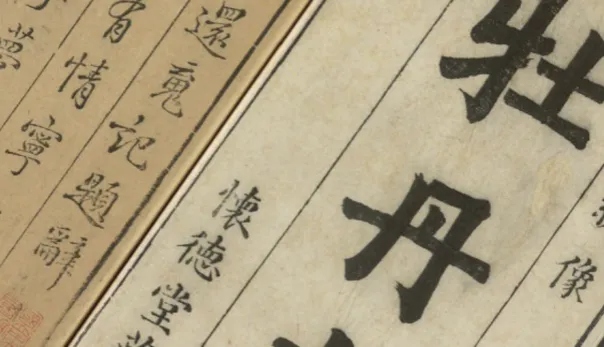 像
牡丹
懷德堂藏
還魂記題辭
有情寧
夢